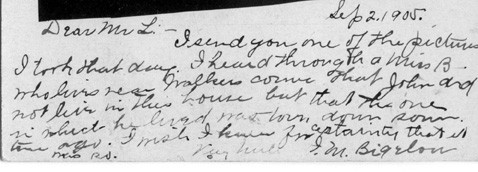 Sep 2. 1905.
Dear Mr Li —
I send you one of the pictures
I took that day. I heard through a Miss B.
who lives near Walkers corner that John did
not live in this house but that the one
in which he lived was torn down some
time ago. I wish I knew for certainty that it
was so. I. M. Bigelow